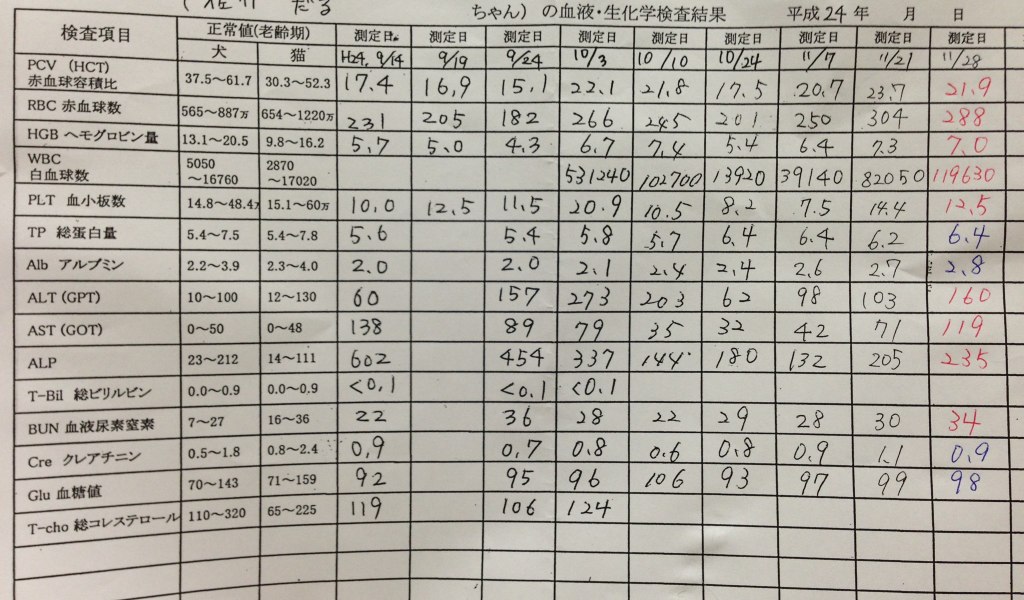 ちゃん) の血液・生化学検査結果 平成24年 月 日
検査項目 正常値(老齢期) 測定日 測定日 測定日 測定日 測定日 測定日 測定日 測定日 測定日
犬 猫 H24, 9/14 9/19 9/24 10/3 10/10 10/24 11/7 11/21 11/28
PCV (HCT)
赤血球容積比 37.5～61.7 30.3～52.3 17.4 16.9 15.1 22.1 21.8 17.5 20.7 23.7 21.9
RBC 赤血球数 565～887万 654～1220万 231 205 182 266 245 201 250 304 288
HGB ヘモグロビン量 13.1～20.5 9.8～16.2 5.7 5.0 4.3 6.7 7.4 5.4 6.4 7.3 7.0
WBC 5050 2870
白血球数 ～16760 ～17020 531240 102700 13920 39140 82050 119630
PLT 血小板数 14.8～48.4万 15.1～60万 10.0 12.5 11.5 20.9 10.5 8.2 7.5 14.4 12.5
TP 総蛋白量 5.4～7.5 5.4～7.8 5.6 5.4 5.8 5.7 6.4 6.4 6.2 6.4
Alb アルブミン 2.2～3.9 2.3～4.0 2.0 2.0 2.1 2.4 2.4 2.6 2.7 2.8
ALT (GPT) 10～100 12～130 60 157 273 203 62 98 103 160
AST (GOT) 0～50 0～48 138 89 79 35 32 42 71 119
ALP 23～212 14～111 602 454 337 144 180 132 205 235
T-Bil 総ビリルビン 0.0～0.9 0.0～0.9 <0.1 <0.1 <0.1
BUN 血液尿素窒素 7～27 16～36 22 36 28 22 29 28 30 34
Cre クレアチニン 0.5～1.8 0.8～2.4 0.9 0.7 0.8 0.6 0.8 0.9 1.1 0.9
Glu 血糖値 70～143 71～159 92 95 96 106 93 97 99 98
T-cho 総コレステロール 110～320 65～225 119 106 124